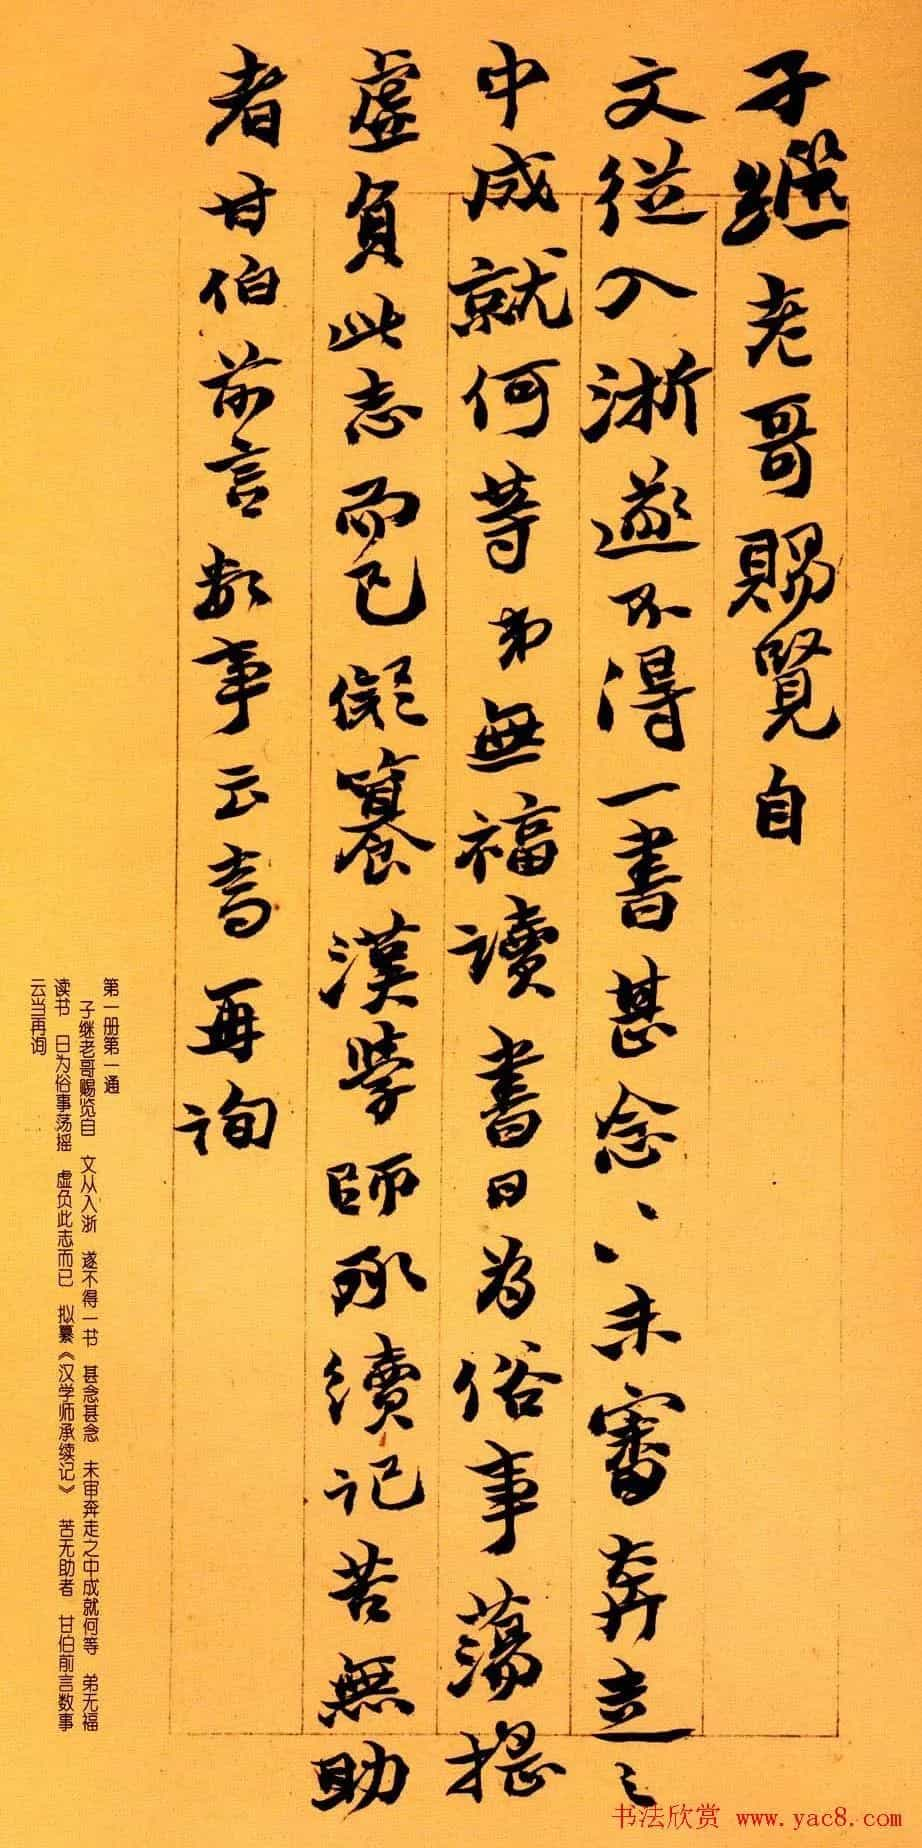 子繼老哥賜覽自
文從入浙遂不得一書甚念〻未審奔走之
中成就何等弟無福讀書日為俗事蕩搖
虛負此志而已儗纂漢學師承續記苦無助
者甘伯前言數事云當再詢
第一册第一通
子继老哥赐览自 文从入浙 遂不得一书 甚念甚念 未审奔走之中成就何等 弟无福
读书 日为俗事荡摇 虚负此志而已 拟纂《汉学师承续记》 苦无助者 甘伯前言数事
云当再询
书法欣赏 www.yac8.com